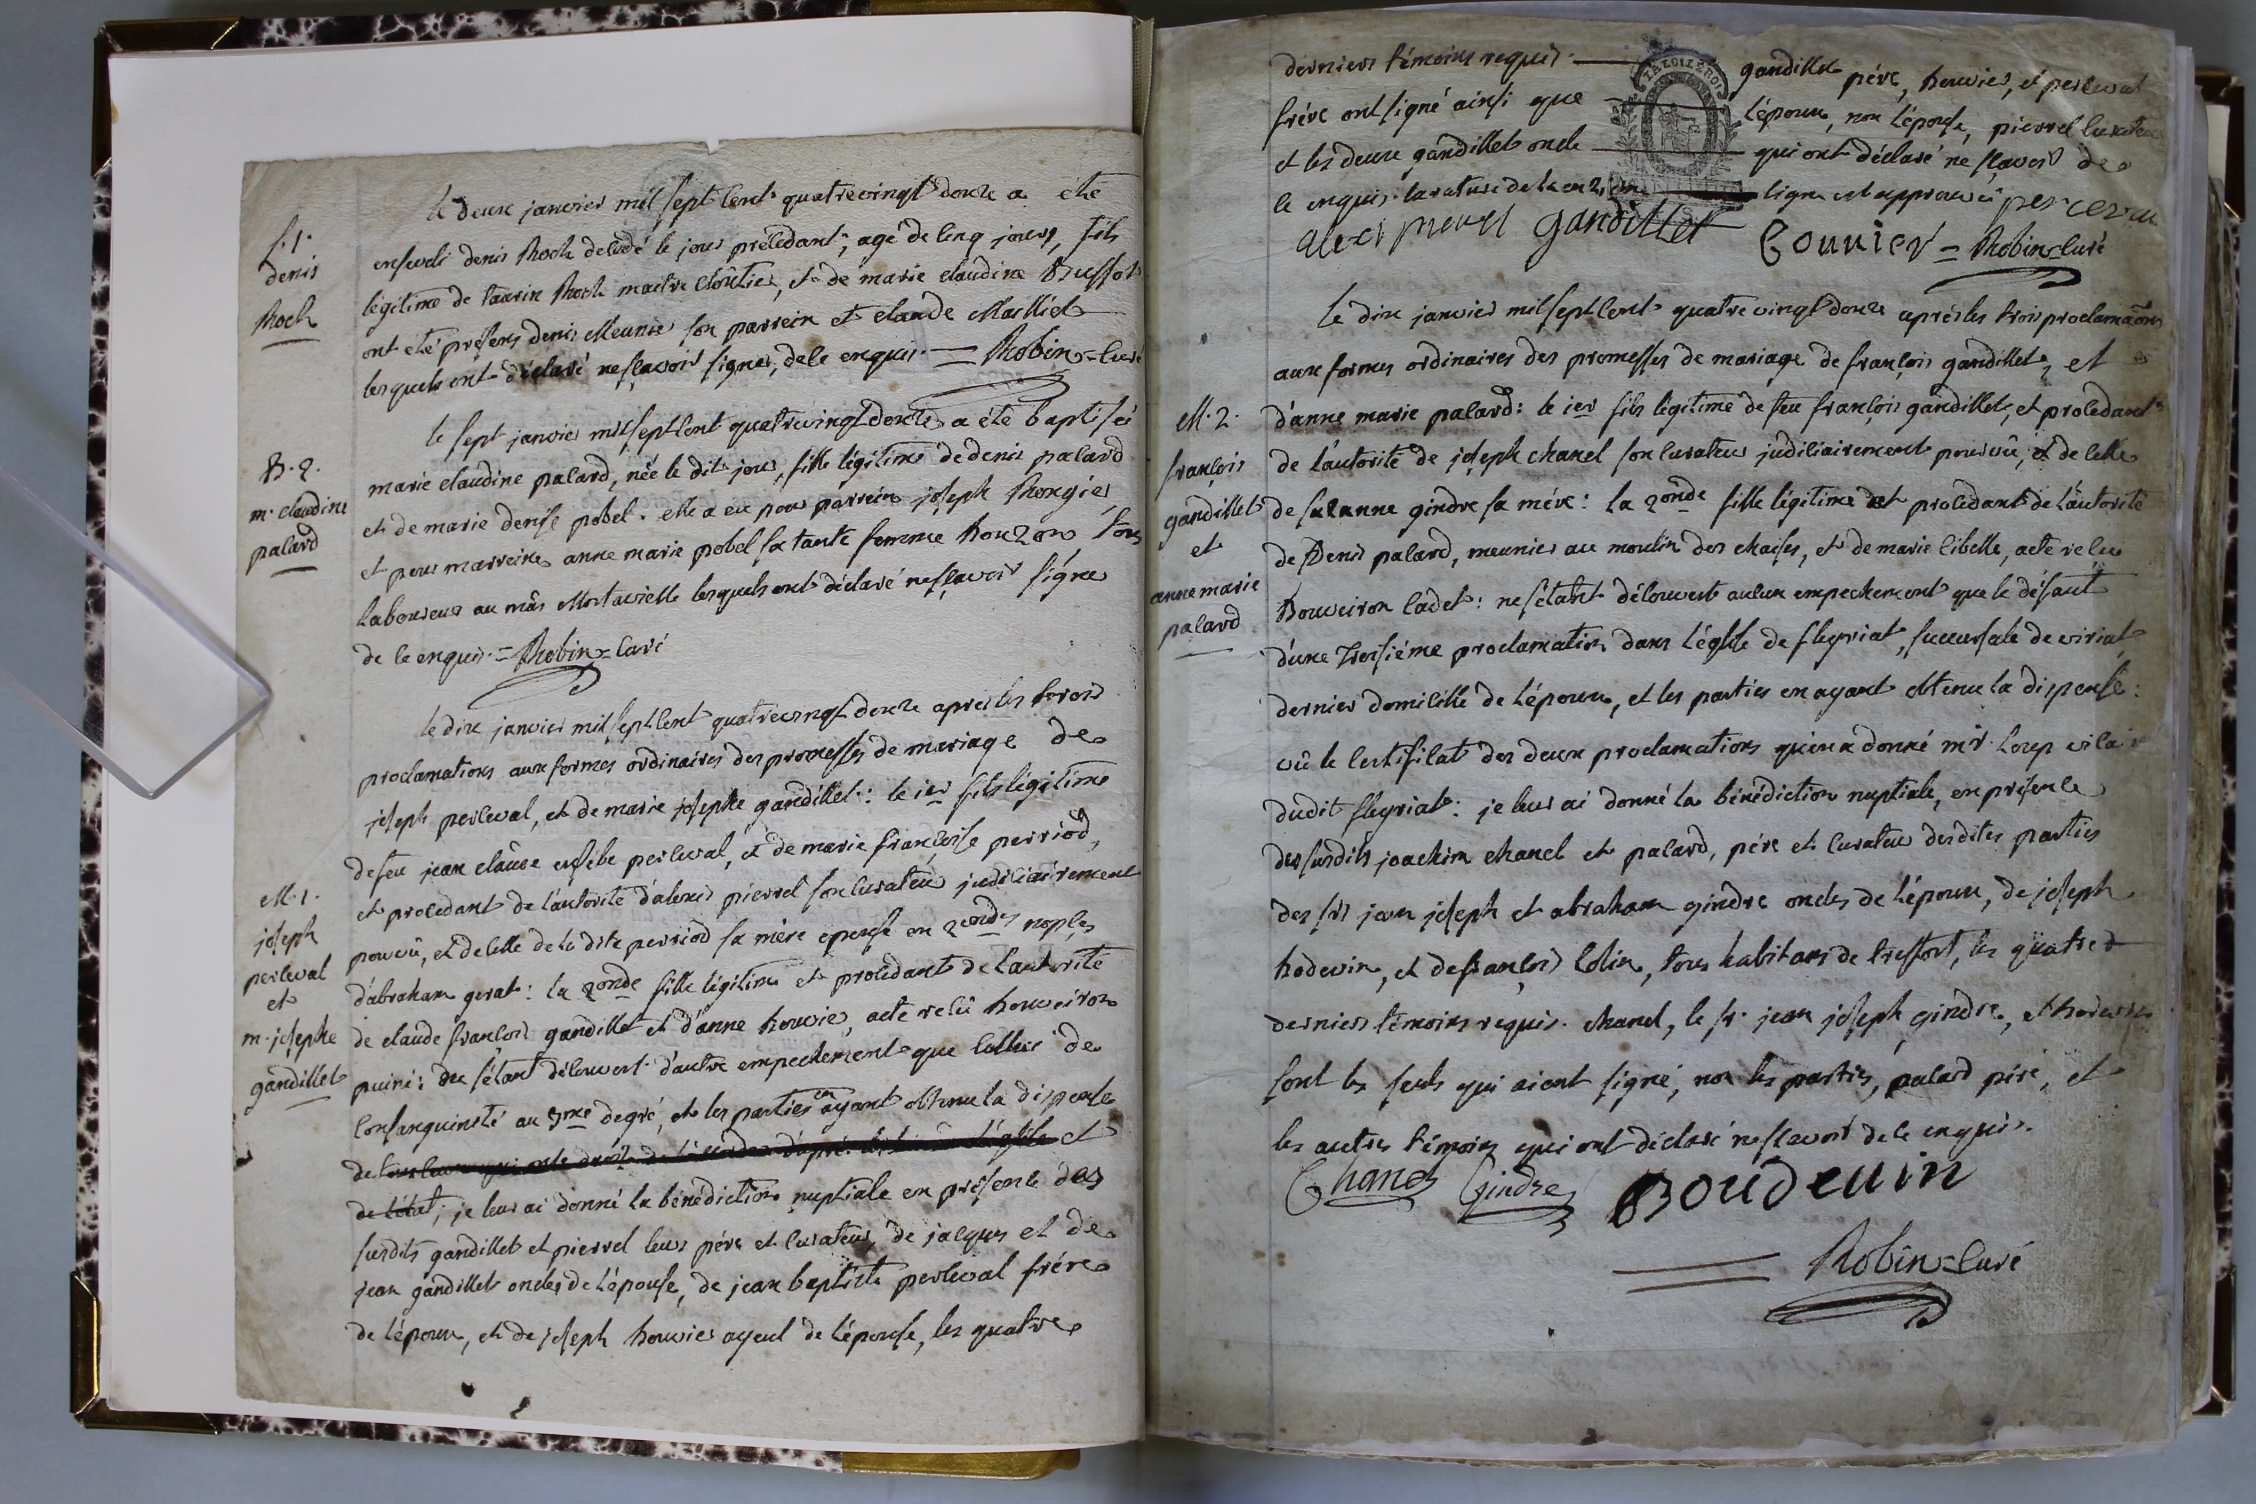 Le deux janvier mil sept cent quatrevingt douze a été
S. 1.
denis
Roch
enseveli denis Roch décédé le jour précédant, agé de cinq jours, fils
légitime de taurin Roch maitre cloûtier, et de marie claudine Buffot
ont été présens denis Meunier son parrein et claude Maillet
lesquels ont déclaré ne sçavoir signer, de ce enquis. = Robin=curé
Le sept janvier mil sept cent quatrevingt douze a été baptisée
B. 2.
m. claudine
palard
marie claudine palard, née le dit jour, fille légitime de denis palard
et de marie denise pobel. elle a eu pour parrein joseph Rongier
et pour marreine anne marie pobel sa tante femme bouzon tous
laboureurs au mâs Mortavielle lesquels ont déclaré ne sçavoir signer
de ce enquis. = Robin=curé
Le dix janvier mil sept cent quatrevingt douze après les trois
proclamations aux formes ordinaires des promesses de mariage de
joseph perceval, et de marie josephe gandillet: le ier fils légitime
M. 1.
joseph
perceval
et
m. josephe
gandillet
de feu jean claude eusebe perceval, et de marie françoise perriod,
et procedant de l'autorité d'alexis pierrel son curateur judiciairement
pourvû, et de celle de la dite perriod sa mère epouse en 2ondes nopces
d'abraham gerat: la 2onde fille légitime et procedant de l'autorité
de claude françois gandillet et d'anne bouvier, acte relu bouveiron
puiné: ne s'étant découvert d'autre empechement que celui de
consanguinité au 3me degré, et les parties en ayant obtenu la dispense
et
de l'état; je leur ai donné la bénédiction nuptiale en présence des
susdits gandillet et pierrel leurs père et curateur, de jacques et de
jean gandillet oncles de l'épouse, de jean baptiste perceval frère
de l'époux, et de joseph bouvier ayeul de l'épouse, les quatre
derniers témoins requis. gandillet père, bouvier, et perceval
frère ont signé ainsi que l'époux, non l'épouse, pierrel curateur
et les deux gandillet oncle qui ont déclaré ne sçavoir de
ce enquis. la rature de la ligne est approuvée perceval
alexi pierrel gandillet Bouvier = Robin=curé
Le dix janvier mil sept cent quatre vingt douze après les trois proclamaõns
aux formes ordinaires des promesses de mariage de françois gandillet, et
M. 2.
françois
gandillet
et
anne marie
palard
d'anne marie palard: le ier fils légitime de feu françois gandillet, et procedant
de l'autorité de joseph chanel son curateur judiciairement pourvû, et de celle
de suzanne gindre sa mère: la 2onde fille légitime et procedant de l'autorité
de Denis palard, meunier au moulin des chaises, et de marie libelle, acte relu
Bouveiron cadet: ne s'étant découvert aucun empechement que le défaut
d'une troisiéme proclamation dans l'église de fleyriat, succursale de viriat
dernier domicile de l'époux, et les parties en ayant obtenu la dispense:
vû le certificat des deux proclamations qu'en a donné mr. Loup vicaire
dudit fleyriat: je leur ai donné la bénédiction nuptiale, en présence
des susdits joachim chanel et palard, père et curateur desdites parties
des srs jean joseph et abraham gindre oncles de l'époux, de joseph
bodevin, et de françois Colin, tous habitans de treffort, les quatre
derniers témoins requis. chanel, le sr. jean joseph gindre, et bodevin
sont les seuls qui aient signé, non les parties, palard père, et
les autres témoins qui ont déclaré ne sçavoir de ce enquis.
Chanel Gindre Boudeuin
= Robin=curé